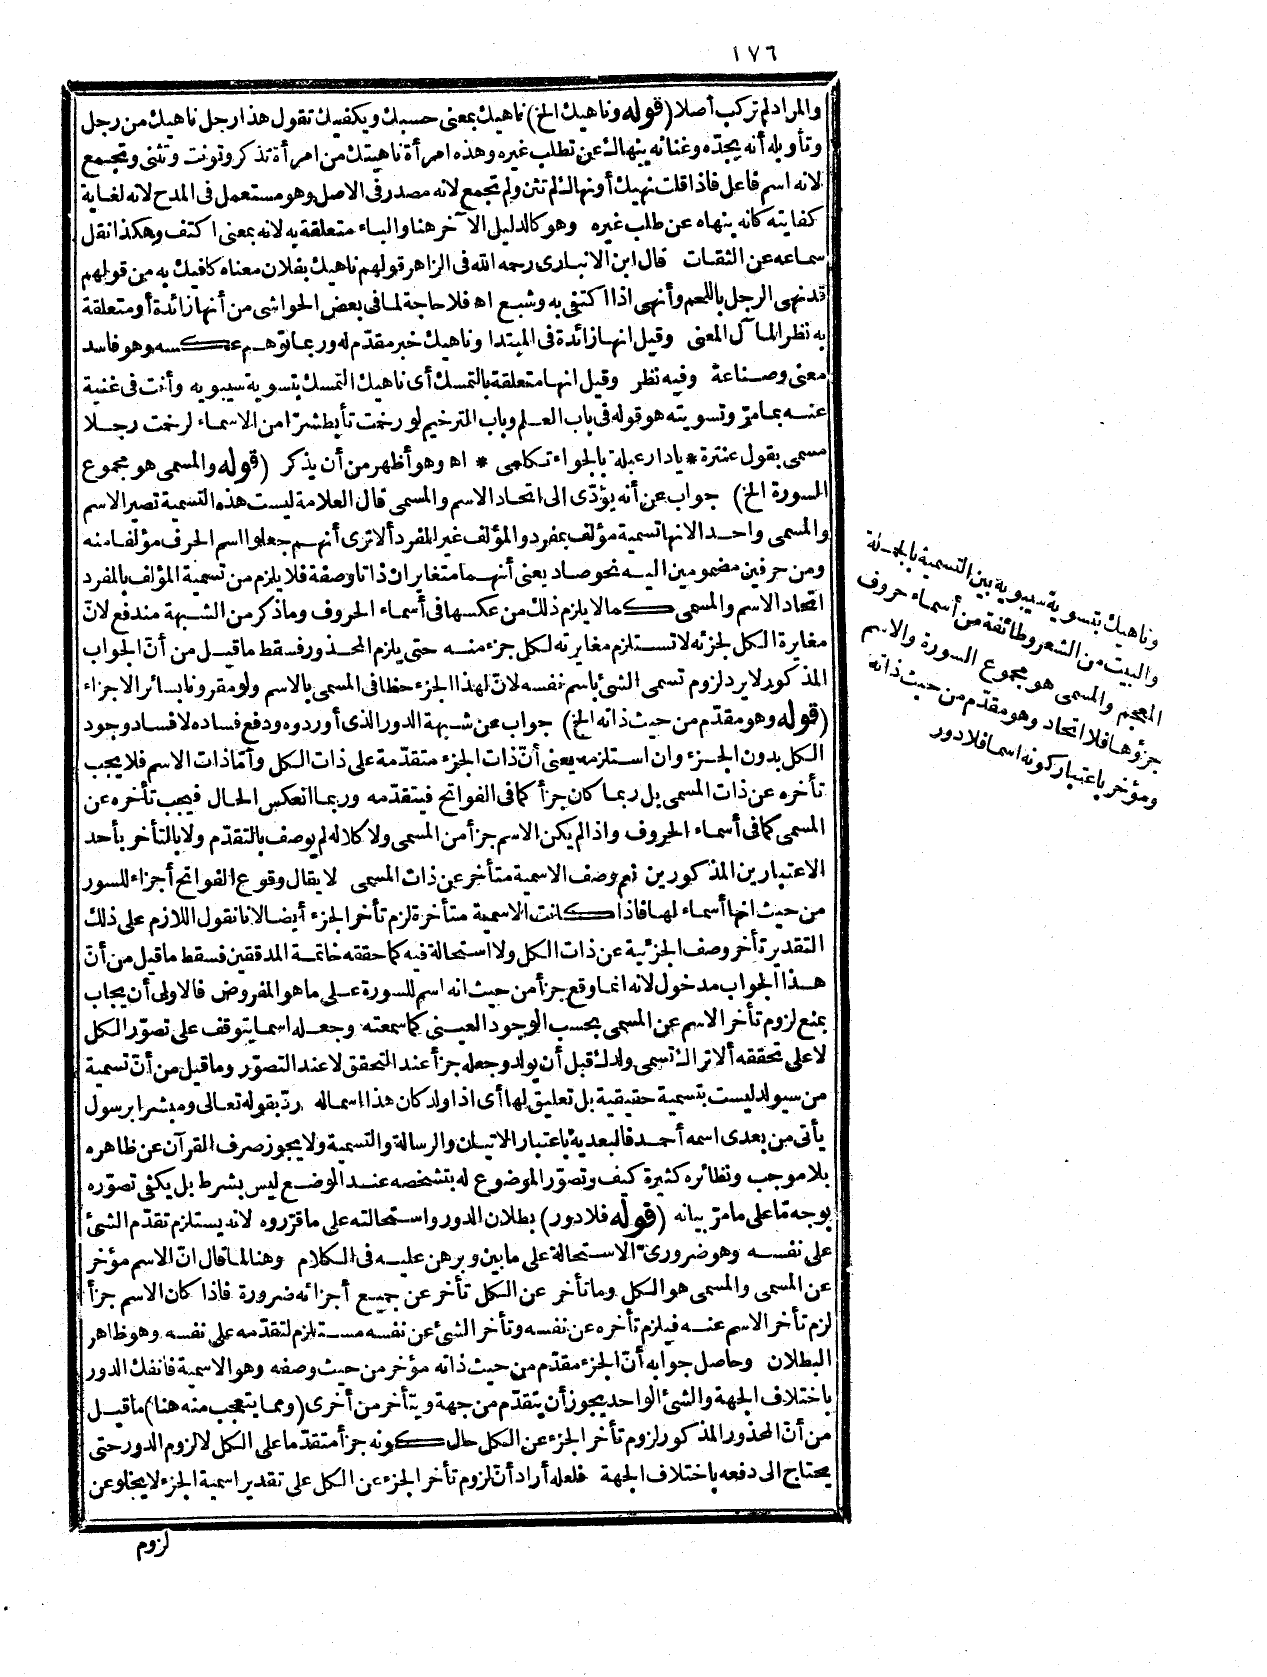 ١٧٦
والمراد لم تركب أصلا (قوله وناهيك الخ) ناهيك بمعنى حسبك ويكفيك تقول هذا رجل ناهيك من رجل
وتأويله أنه بجدّه وغنائه ينهاك عن تطلب غيره وهذه امرأة ناهيتك من امرأة تذكر وتؤنث وتثنى وتجمع
لانه اسم فاعل فاذا قلت نهيك أونهاك لم تثن ولم تجمع لانه مصدر فى الاصل وهو مستعمل فى المدح لانه لغاية
كفايته كانه ينهاه عن طلب غيره وهو كالدليل الآخر هنا والباء متعلقة به لانه بمعنى اكتف وهكذا نقل
سماعه عن الثقات قال ابن الانبارى رحمه الله فى الزاهر قولهم ناهيك بفلان معناه كافيك به من قولهم
قد نهى الرجل باللحم وأنهى اذا اكتفى به وشبع اه فلا حاجة لما فى بعض الحواشى من أنها زائدة أو متعلقة
به نظر المآل المعنى وقيل انها زائدة فى المبتدا وناهيك خبر مقدّم له وربما توهم عكسه وهو فاسد
معنى وصناعة وفيه نظر وقيل انها متعلقة بالتمسك أى ناهيك التمسك بتسوية سيبويه وأنت فى غنية
عنه بما مرّ وتسويته هو قوله فى باب العلم وباب الترخيم لو رخمت تأبط شرّا من الاسماء لرخمت رجلا
مسمى بقول عنترة * يادار عبلة بالجواء تكلمى * اه وهو أظهر من أن يذكر (قوله والمسمى هو مجموع
السورة الخ) جواب عن أنه يؤدّى الى اتحاد الاسم والمسمى قال العلامة ليست هذه التسمية تصير الاسم
والمسمى واحدا لانها تسمية مؤلف بمفرد والمؤلف غير المفرد ألا ترى أنهم جعلوا اسم الحرف مؤلفا منه
ومن حرفين مضمومين اليه نحو صاد يعنى أنهما متغايران ذاتا وصفة فلا يلزم من تسمية المؤلف بالمفرد
اتحاد الاسم والمسمى كما لا يلزم ذلك من عكسها فى أسماء الحروف وما ذكر من الشبهة مندفع لانّ
مغايرة الكل لجزئه لا تستلزم مغايرته لكل جزء منه حتى يلزم المحذور فسقط ما قيل من أنّ الجواب
المذكور لا يرد لزوم تسمى الشئ باسم نفسه لانّ لهذا الجزء حظا فى المسمى بالاسم ولو مقرونا بسائر الاجزاء
(قوله وهو مقدّم من حيث ذاته الخ) جواب عن شبهة الدور الذى أوردوه ودفع فساده لا فساد وجود
الكل بدون الجزء وان استلزمه يعنى أنّ ذات الجزء متقدّمة على ذات الكل وأمّا ذات الاسم فلا يجب
تأخره عن ذات المسمى بل ربما كان جزأ كما فى الفواتح فيتقدّمه وربما انعكس الحال فيجب تأخره عن
المسمى كما فى أسماء الحروف واذا لم يكن الاسم جزأ من المسمى ولا كلا له لم يوصف بالتقدّم ولا بالتأخر بأحد
الاعتبارين المذكورين نعم وصف الاسمية متأخر عن ذات المسمى لا يقال وقوع الفواتح أجزاء للسور
من حيث انها أسماء لها فاذا كانت الاسمية متأخرة لزم تأخر الجزء أيضا لانا نقول اللازم على ذلك
التقدير تأخر وصف الجزئية عن ذات الكل ولا استحالة فيه كما حققه خاتمة المدققين فسقط ما قيل من أنّ
هذا الجواب مدخول لانه انما وقع جزأ من حيث انه اسم للسورة على ما هو المفروض فالاولى أن يجاب
بمنع لزوم تأخر الاسم عن المسمى بحسب الوجود العينى كما سمعته وجعله اسما يتوقف على تصوّر الكل
لا على تحققه ألا تراك تسمى ولدك قبل أن يولد وجعله جزأ عند التحقق لا عند التصوّر وما قيل من أنّ تسمية
من سيولد ليست بتسمية حقيقية بل تعليق لها أى اذا ولد كان هذا اسماله ردّ بقوله تعالى ومبشرا برسول
يأتى من بعدى اسمه أحمد فالبعدية باعتبار الاتيان والرسالة والتسمية ولا يجوز صرف القرآن عن ظاهره
بلا موجب ونظائره كثيرة كيف وتصوّر الموضوع له بتشخصه عند الوضع ليس بشرط بل يكفى تصوّره
بوجه مّا على ما مرّ بيانه (قوله فلا دور) بطلان الدور واستحالته على ما قرّروه لانه يستلزم تقدّم الشئ
على نفسه وهو ضرورىّ الاستحالة على ما بين وبرهن عليه فى الكلام وهنا لما قال انّ الاسم مؤخر
عن المسمى والمسمى هو الكل وما تأخر عن الكل تأخر عن جميع أجزائه ضرورة فاذا كان الاسم جزأ
لزم تأخر الاسم عنه فيلزم تأخره عن نفسه وتأخر الشئ عن نفسه مستلزم لتقدّمه على نفسه وهو ظاهر
البطلان وحاصل جوابه أنّ الجزء مقدّم من حيث ذاته مؤخر من حيث وصفه وهو الاسمية فانفك الدور
باختلاف الجهة والشئ الواحد يجوز أن يتقدّم من جهة ويتأخر من أخرى (ومما يتعجب منه هنا) ما قيل
من أنّ المحذور المذكور لزوم تأخر الجزء عن الكل حال كونه جزأ متقدّما على الكل لا لزوم الدور حتى
يحتاج الى دفعه باختلاف الجهة فلعله أراد أنّ لزوم تأخر الجزء عن الكل على تقدير اسمية الجزء لا يخلو عن
لزوم
وناهيك بتسوية سيبويه بين التسمية بالجملة
والبيت من الشعر وطائفة من أسماء حروف
المعجم والمسمى هو مجموع السورة والاسم
جزؤها فلا اتحاد وهو مقدّم من حيث ذاته
ومؤخر باعتبار كونه اسما فلا دور